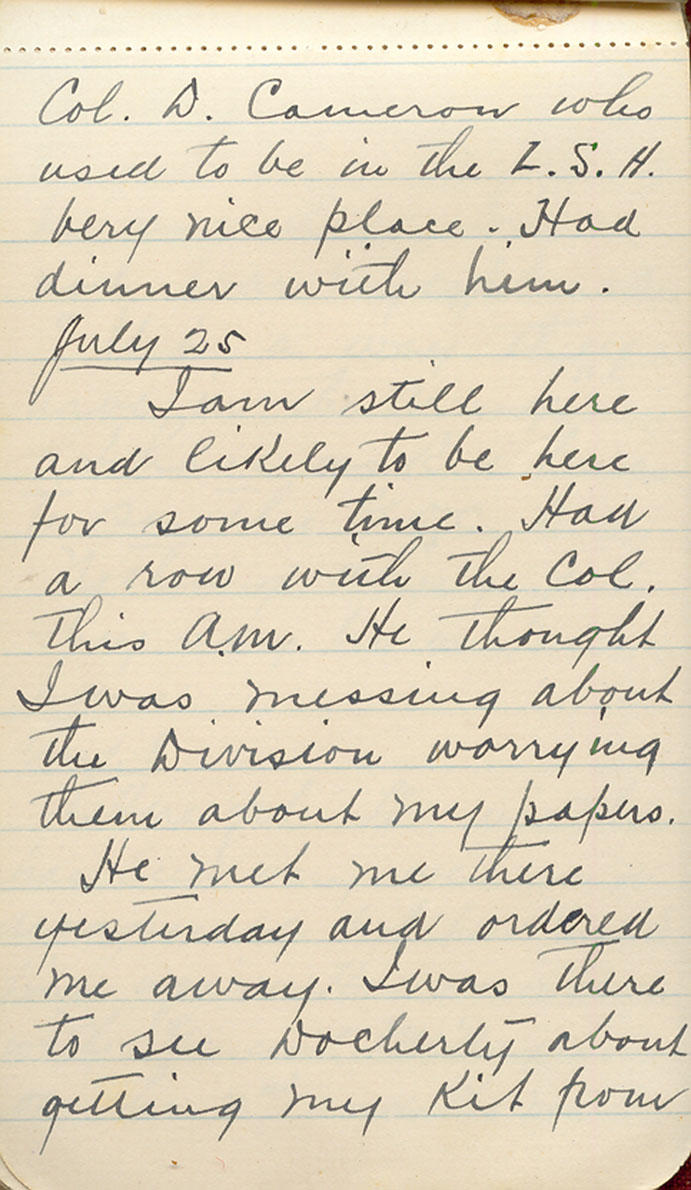 Col. D. Cameron who
used to be in the L.S.H.
very nice place. Had
dinner with him.
July 25
I am still here
and likely to be here
for some time. Had
a row with the Col.
this A.M. He thought
I was messing about
the Division worrying
them about my papers.
He met me there
yesterday and ordered
me away. I was there
to see Docherty about
getting my Kit from